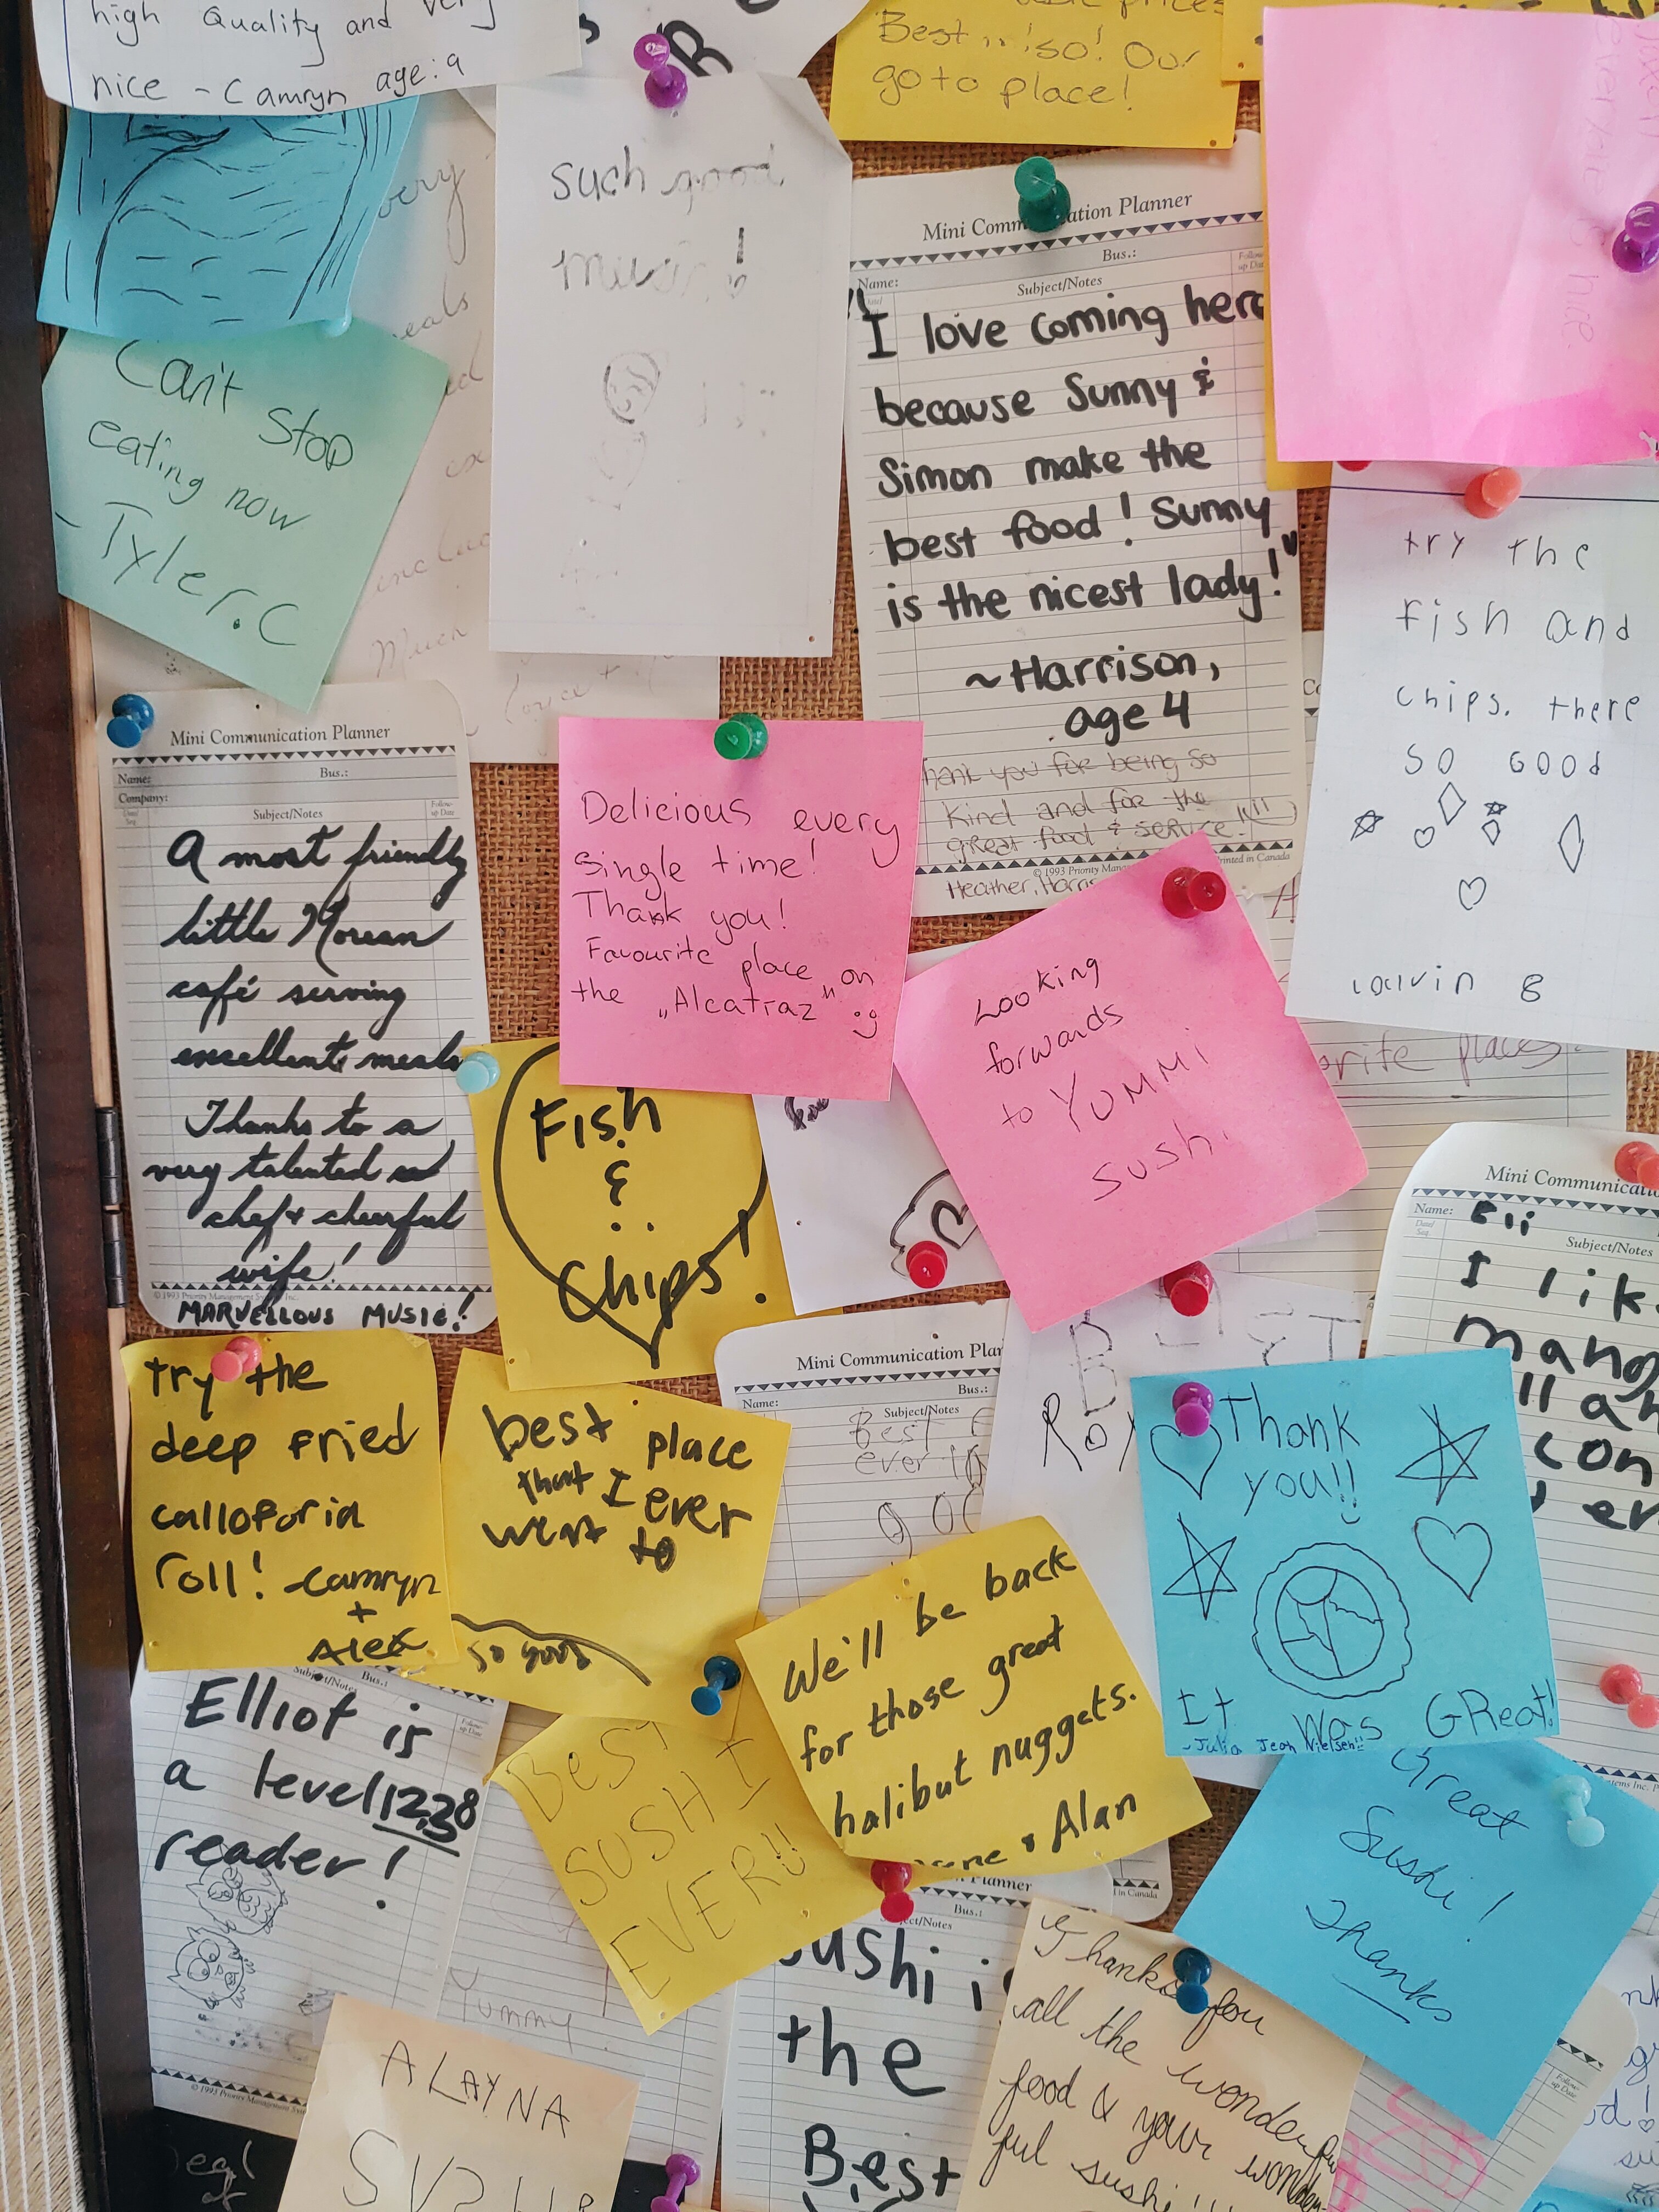 high Quality and very
nice - Camryn age: 9
Best miso! Our
go to place!
such good
music!
Can't Stop
eating now
-Tyler.C
Mini Communication Planner
Bus.:
Name:
Subject/Notes
"I love coming here
because Sunny &
Simon make the
best food! Sunny
is the nicest lady!"
~Harrison,
age 4
Thank you for being so
kind and for the
great food & service!
© 1993 Priority
Printed in Canada
Heather,
try the
fish and
chips. there
so Good
calvin 8
Mini Communication Planner
Name: Bus.:
Company:
Subject/Notes
A most friendly
little Korean
café serving
excellent meals
Thanks to a
very talented
chef + cheerful
wife!
© 1993 Priority Management
MARVELLOUS MUSIC!
Delicious every
Single time!
Thank you!
Favourite place on
the „Alcatraz" :)
Looking
forwards
to YUMMi
sushi
places
Fish
&
Chips!
try the
deep fried
calloforia
roll! -camryn
+
Alex
best place
that I ever
went to
so good
Mini Communication
Name: Bus.:
Subject/Notes
Best
ever
BEST
Mini
Name: Eli
Subject/Notes
I
Thank
you!!
It Was GReat!
~Julia Jean Nielsen!!
We'll be back
for those great
halibut nuggets.
& Alan
Elliot is
a level 12,38
reader!
BEST
SUSHI I
EVER!!
Great
Sushi!
Thanks
Yummy
Planner
Bus.:
Sushi is
the
Best
Thanks for
all the wonderful
food & your wonder
ful sushi!!!
ALAYNA